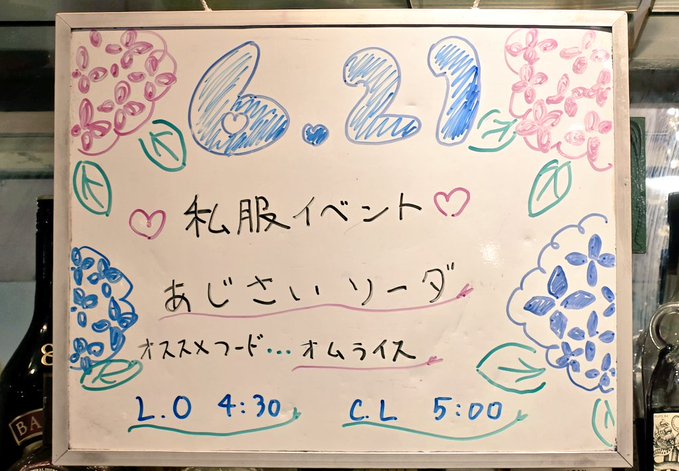 6.21
私服イベント
あじさいソーダ
オススメフード・・・オムライス
L.O 4:30 C.L 5:00
8
BA